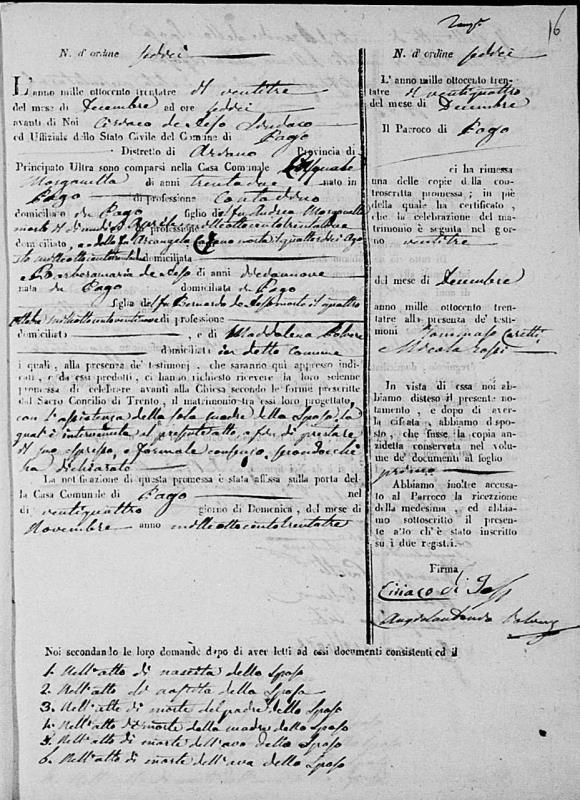 16
N. d'ordine sedici
L'anno mille ottocento trentatre il ventitre
del mese di Decembre ad ore sedici
avanti di Noi Ciriaco de Jeso Sindaco
ed Uffiziale dello Stato Civile del Comune di Pago
Distretto di Ariano Provincia di
Principato Ultra sono comparsi nella Casa Comunale Pasquale
Morganella di anni trentadue nato in
Pago di professione Contadino
domiciliato in Pago figlio del fu Andrea Morganella
morto il di Aprile milleottocentotrentadue di professione
domiciliato, e della fu Arcangela morta il quattordici Ago
sto milleottocento domiciliata
e Barberamaria de Jeso di anni diciannove
nata in Pago domiciliata in Pago
figlia del fu Bernardo de Jeso morto il quattro
Ottobre milleottocentoventinove di professione
domiciliato, e di Maddalena
domiciliata in detto comune
i quali, alla presenza de' testimonj, che saranno qui appresso indi-
cati, e da essi prodotti, ci hanno richiesto ricevere la loro solenne
promessa di celebrare avanti alla Chiesa secondo le forme prescritte
del Sacro Concilio di Trento, il matrimonio tra essi loro progettato,
con l'assistenza della sola madre della Sposa, la
quale è intervenuta al presente atto, a fin di prestare
il suo espresso, e formale consenso, siccome
ha dichiarato
La notificazione di questa promessa è stata affissa sulla porta del-
la Casa Comunale di Pago nel
di ventiquattro giorno di Domenica, del mese di
Novembre anno milleottocentotrentatre
N. d'ordine sedici
L'anno mille ottocento tren-
tatre il ventiquattro
del mese di Decembre
Il Parroco di Pago
ci ha rimessa
una delle copie della con-
troscritta promessa; in piè
della quale ha certificato,
che la celebrazione del ma-
trimonio è seguita nel gior-
no ventitre
del mese di Decembre
anno mille ottocento tren-
tatre alla presenza de' testi-
moni Tommaso Caretti
Nicola Rossi
In vista di essa noi ab-
biamo disteso il presente no-
tamento, e dopo di aver-
la cifrata, abbiamo dispo-
sto, che fusse la copia an-
zidetta conservata nel vo-
lume de' documenti al foglio
primo
Abbiamo inoltre accusa-
to al Parroco la ricezione
della medesima, ed abbia-
mo sottoscritto il presen-
te atto ch'è stato inscritto
su i due registri.
Firma
Ciriaco di Jeso
Noi secondando le loro domande dopo di aver letti ad essi documenti consistenti ed il
1. Nell'atto di nascita dello Sposo
2. Nell'atto di nascita della Sposa
3. Nell'atto di morte del padre dello Sposo
4. Nell'atto di morte della madre dello Sposo
5. Nell'atto di morte dell'avo dello Sposo
6. Nell'atto di morte dell'ava dello Sposo